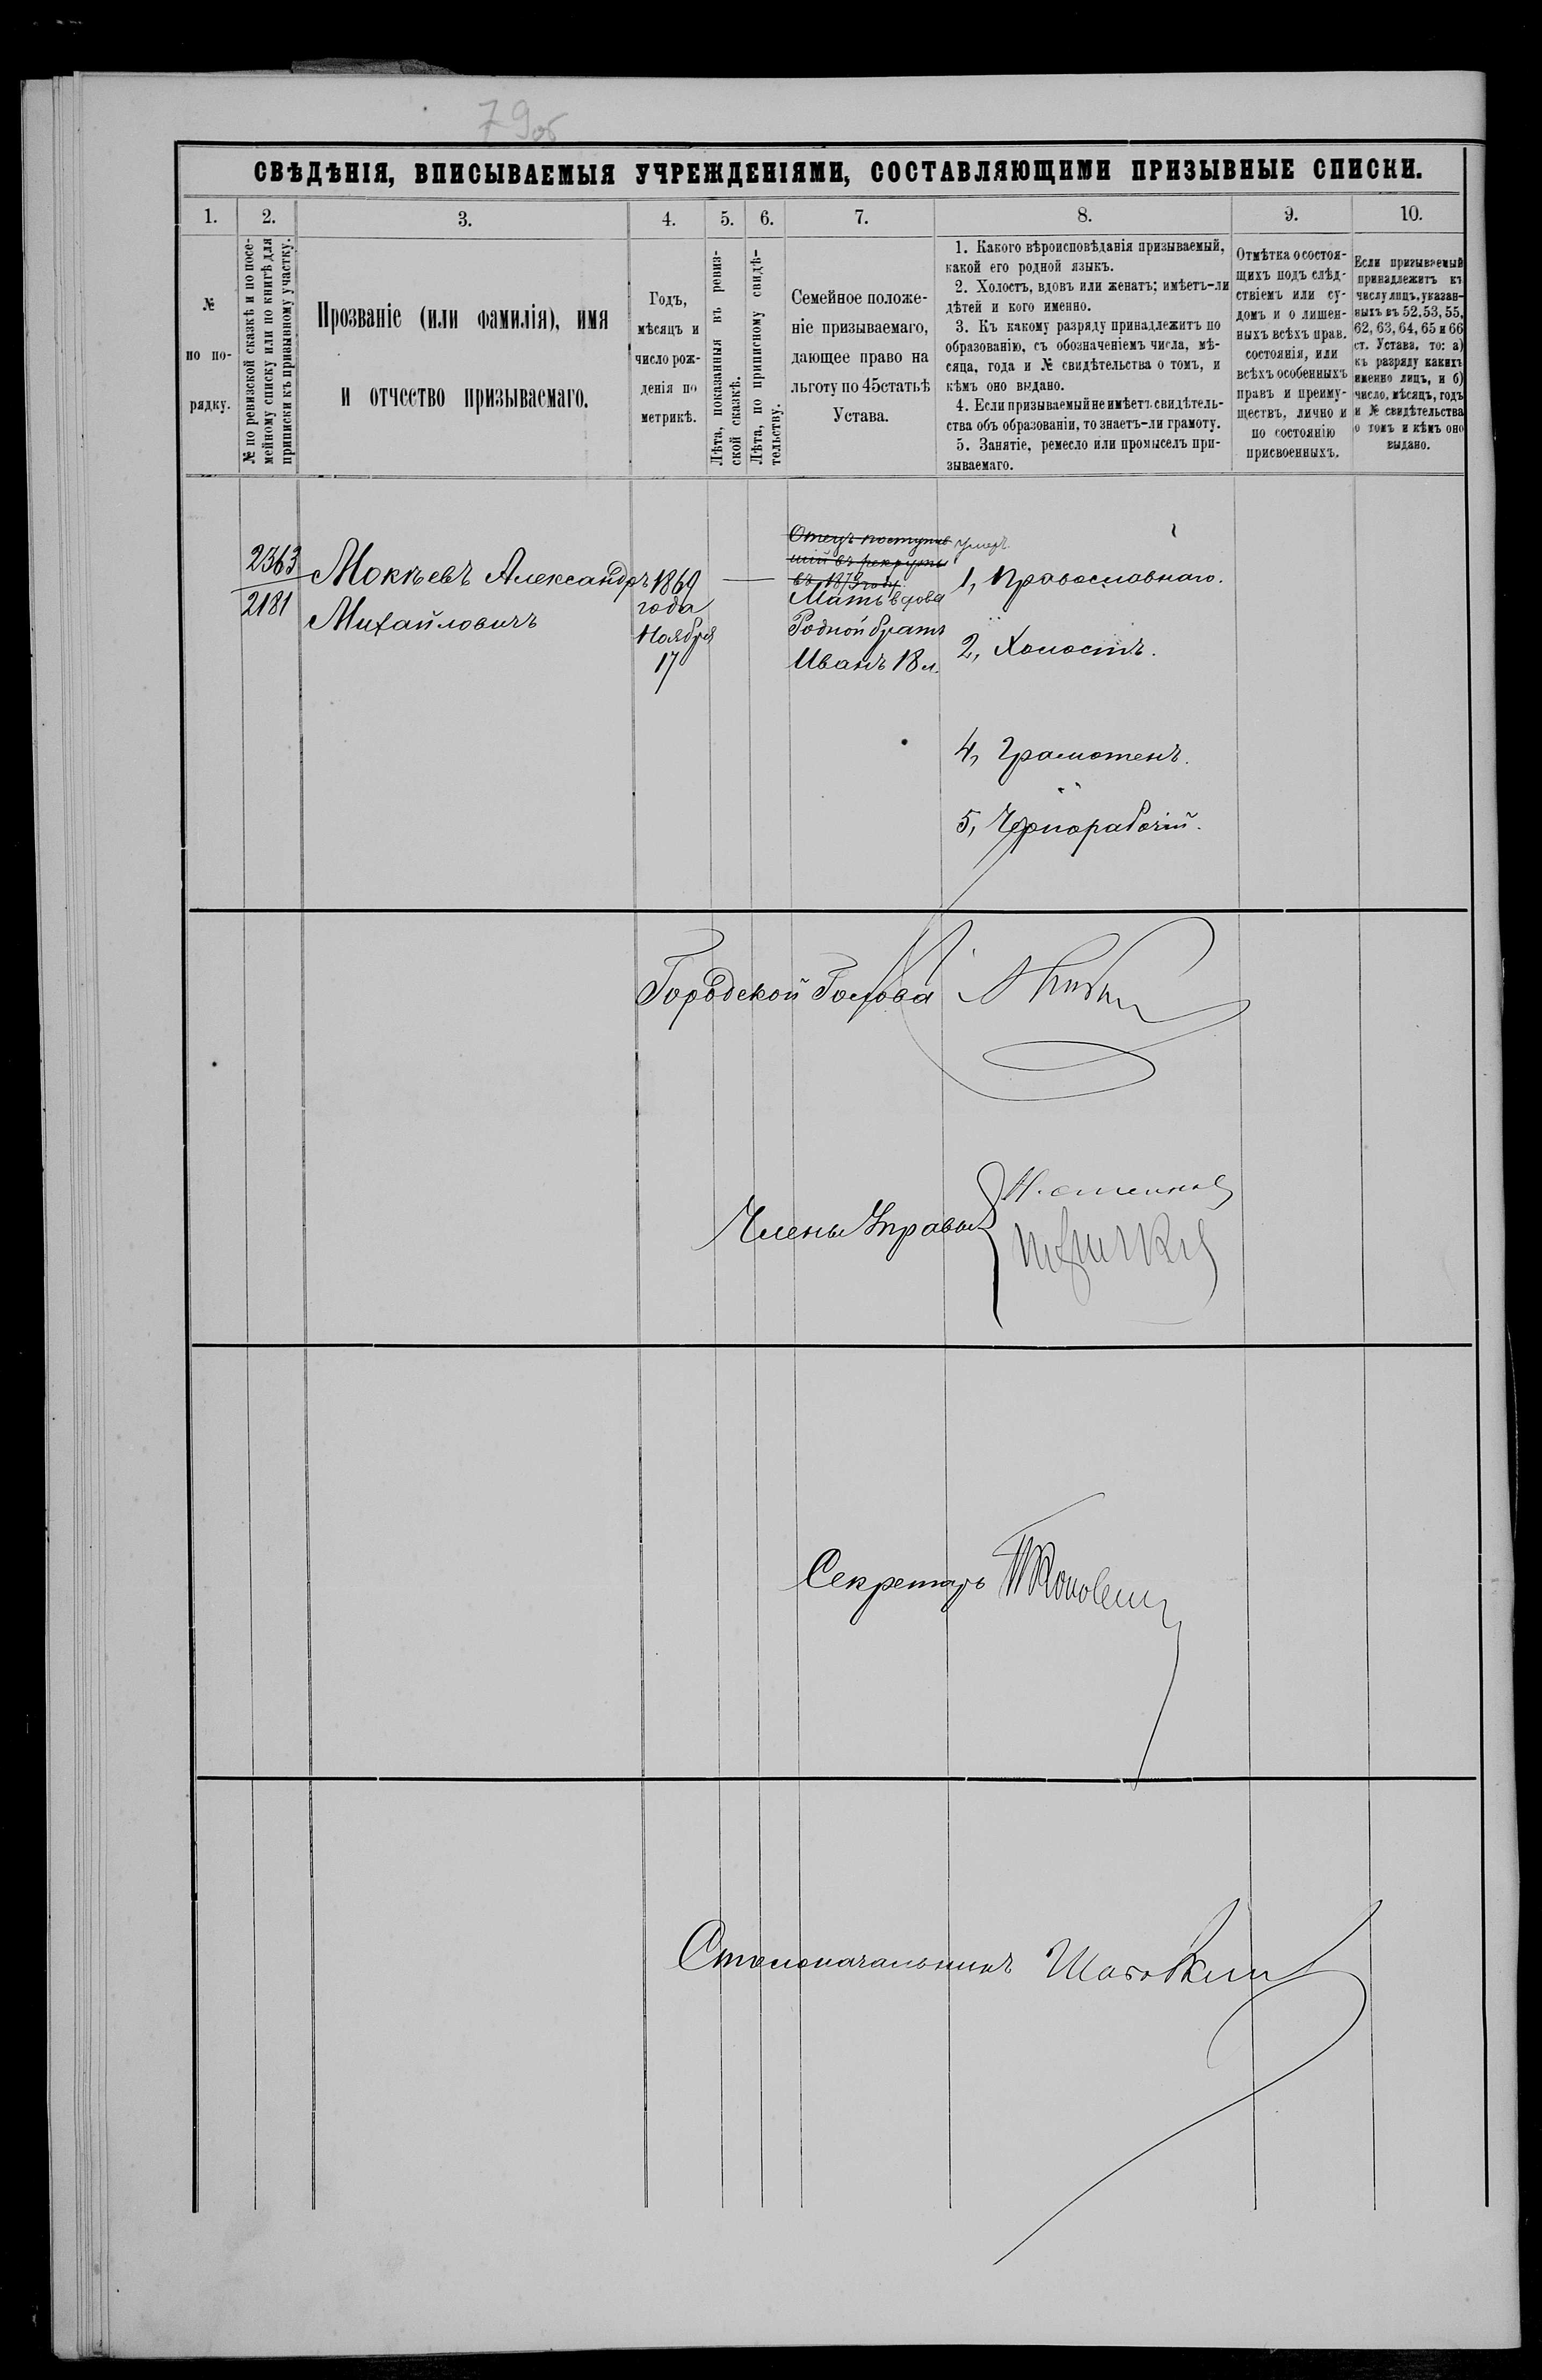 79об
СВѢДѢНІЯ, ВПИСЫВАЕМЫЯ УЧРЕЖДЕНІЯМИ, СОСТАВЛЯЮЩИМИ ПРИЗЫВНЫЕ СПИСКИ.
1.
№
по по-
рядку.
2.
№ по ревизской сказкѣ и по посе-
мейному списку или по книгѣ для
приписки къ призывному участку.
3.
Прозваніе (или фамилія), имя
и отчество призываемаго.
4.
Годъ,
мѣсяцъ и
число рож-
денія по
метрикѣ.
5.
Лѣта, показанныя въ ревиз-
ской сказкѣ.
6.
Лѣта, по приписному свидѣ-
тельству.
7.
Семейное положе-
ніе призываемаго,
дающее право на
льготу по 45 статьѣ
Устава.
8.
1. Какого вѣроисповѣданія призываемый,
какой его родной языкъ.
2. Холостъ, вдовъ или женатъ; имѣетъ-ли
дѣтей и кого именно.
3. Къ какому разряду принадлежитъ по
образованію, съ обозначеніемъ числа, мѣ-
сяца, года и № свидѣтельства о томъ, и
кѣмъ оно выдано.
4. Если призываемый не имѣетъ свидѣтель-
ства объ образованіи, то знаетъ-ли грамоту.
5. Занятіе, ремесло или промыселъ при-
зываемаго.
9.
Отмѣтка о состоя-
щихъ подъ слѣд-
ствіемъ или су-
домъ и о лишен-
ныхъ всѣхъ прав.
состоянія, или
всѣхъ особенныхъ
правъ и преиму-
ществъ, лично и
по состоянію
присвоенныхъ.
10.
Если призываемый
принадлежитъ къ
числу лицъ, указан-
ныхъ въ 52. 53, 55,
62, 63, 64, 65 и 66
ст. Устава, то: а)
къ разряду какихъ
именно лицъ, и б)
число, мѣсяцъ, годъ
и № свидѣтельства
о томъ и кѣмъ оно
выдано.
2363
2181
Мокѣевъ Александръ
Михайловичъ
1869
года
Ноября
17
—
Отецъ поступив
шій въ рекруты
въ 1873 году.
умеръ.
Мать вдова
Родной братъ
Иванъ 18 л.
1, Православнаго.
2, Холостъ.
4, Грамотенъ.
5, Чернорабочій.
Городской Голова
Члены Управы
Секретарь
Столоначальникъ